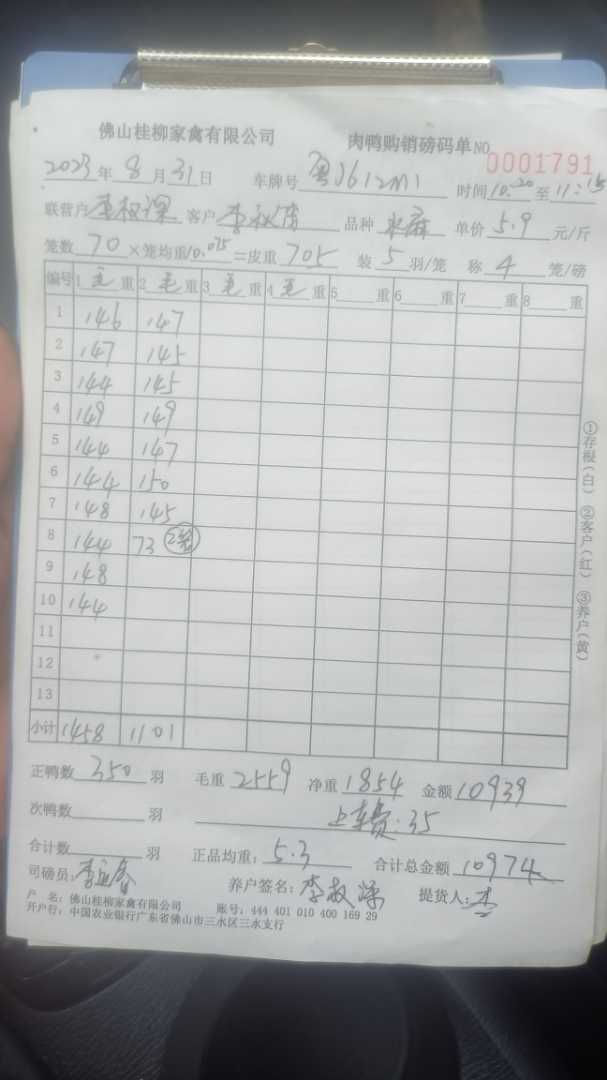 佛山桂柳家禽有限公司 肉鸭购销磅码单 NO 0001791
2023年8月31日 车牌号 粤J612M1 时间10:20至11:15
联营户 客户 品种 水麻 单价 5.9 元/斤
笼数 70 ×笼均重10.075=皮重 705 装 5 羽/笼 称 4 笼/磅
编号 1 毛 重 2 毛 重 3 毛 重 4 毛 重 5 重 6 重 7 重 8 重
1 146 147
2 147 145
3 144 145
4 149 149
5 144 147
6 144 150
7 148 145
8 144 73 2笼
9 148
10 144
11
12
13
小计 1458 1101
正鸭数 350 羽 毛重 2559 净重 1854 金额 10939
次鸭数 羽 上车费:35
合计数 羽 正品均重: 5.3 合计总金额 10974
司磅员: 养户签名: 提货人: 李
户 名: 佛山桂柳家禽有限公司 账号: 444 401 010 400 169 29
开户行: 中国农业银行广东省佛山市三水区三水支行
①存根(白) ②客户(红) ③养户(黄)